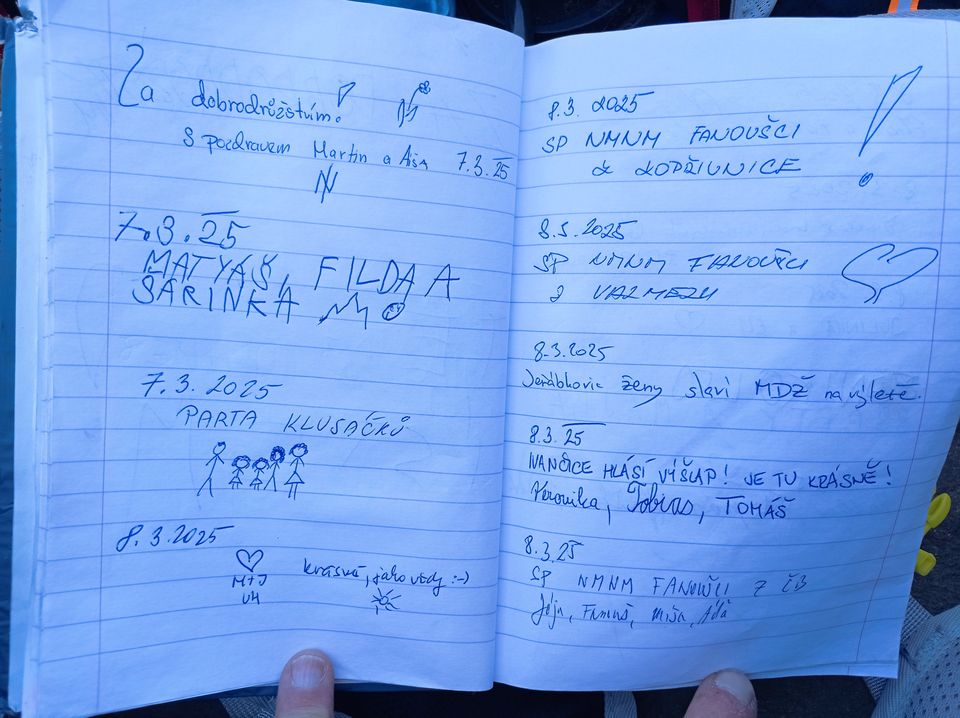 Za dobrodružstvím!
S pozdravem Martin a Aiša 7.3.25
7.3.25
MATYÁŠ, FILDA A
SÁRINKA
7.3.2025
PARTA KLUSAČKŮ
8.3.2025
M+J
UH
krásně, jako vždy :-)
8.3.2025
SP NMNM FANOUŠCI
Z KOPŘIVNICE
8.3.2025
SP NMNM FANOUŠCI
Z VALMEZU
8.3.2025
ženy slaví MDŽ na výletě.
8.3.25
IVANČICE HLÁSÍ VÝŠLAP! JE TU KRÁSNĚ!
Veronika, Tobias, TOMÁŠ
8.3.25
SP NMNM FANOUŠCI Z ČB
Míša, Áďa